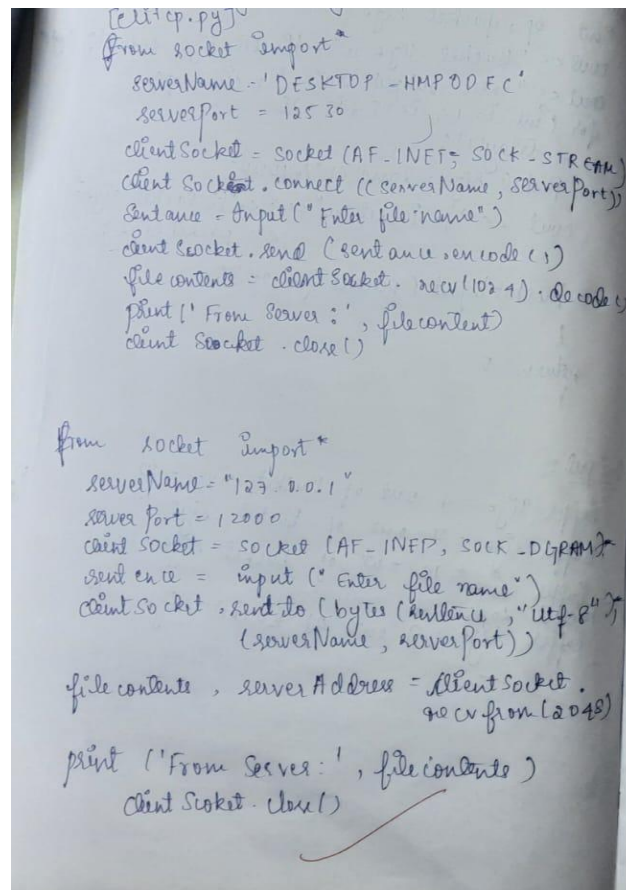 [clitcp.py]
from socket import*
serverName = 'DESKTOP - HMPODFC'
serverPort = 12530
clientSocket = socket (AF-INET, SOCK-STREAM)
client Socket.connect ((serverName, serverPort))
Sentance = Input ("Enter file name")
client Soocket. send (sentance.encode())
file contents = client Socket. recv (1024). decode()
print ('From Server :', filecontent)
client Soocket . close()
from socket import*
serverName = "127.0.0.1"
server Port = 12000
client Socket = socket (AF-INEP, SOCK-DGRAM)
sentence = input (" Enter file name")
clientSocket .sendto (bytes (sentence, "utf-8"),
(serverName, serverPort))
file contents , server Address = client Socket.
recv from (2048)
print ('From Server:', file contents )
client Scoket. close()